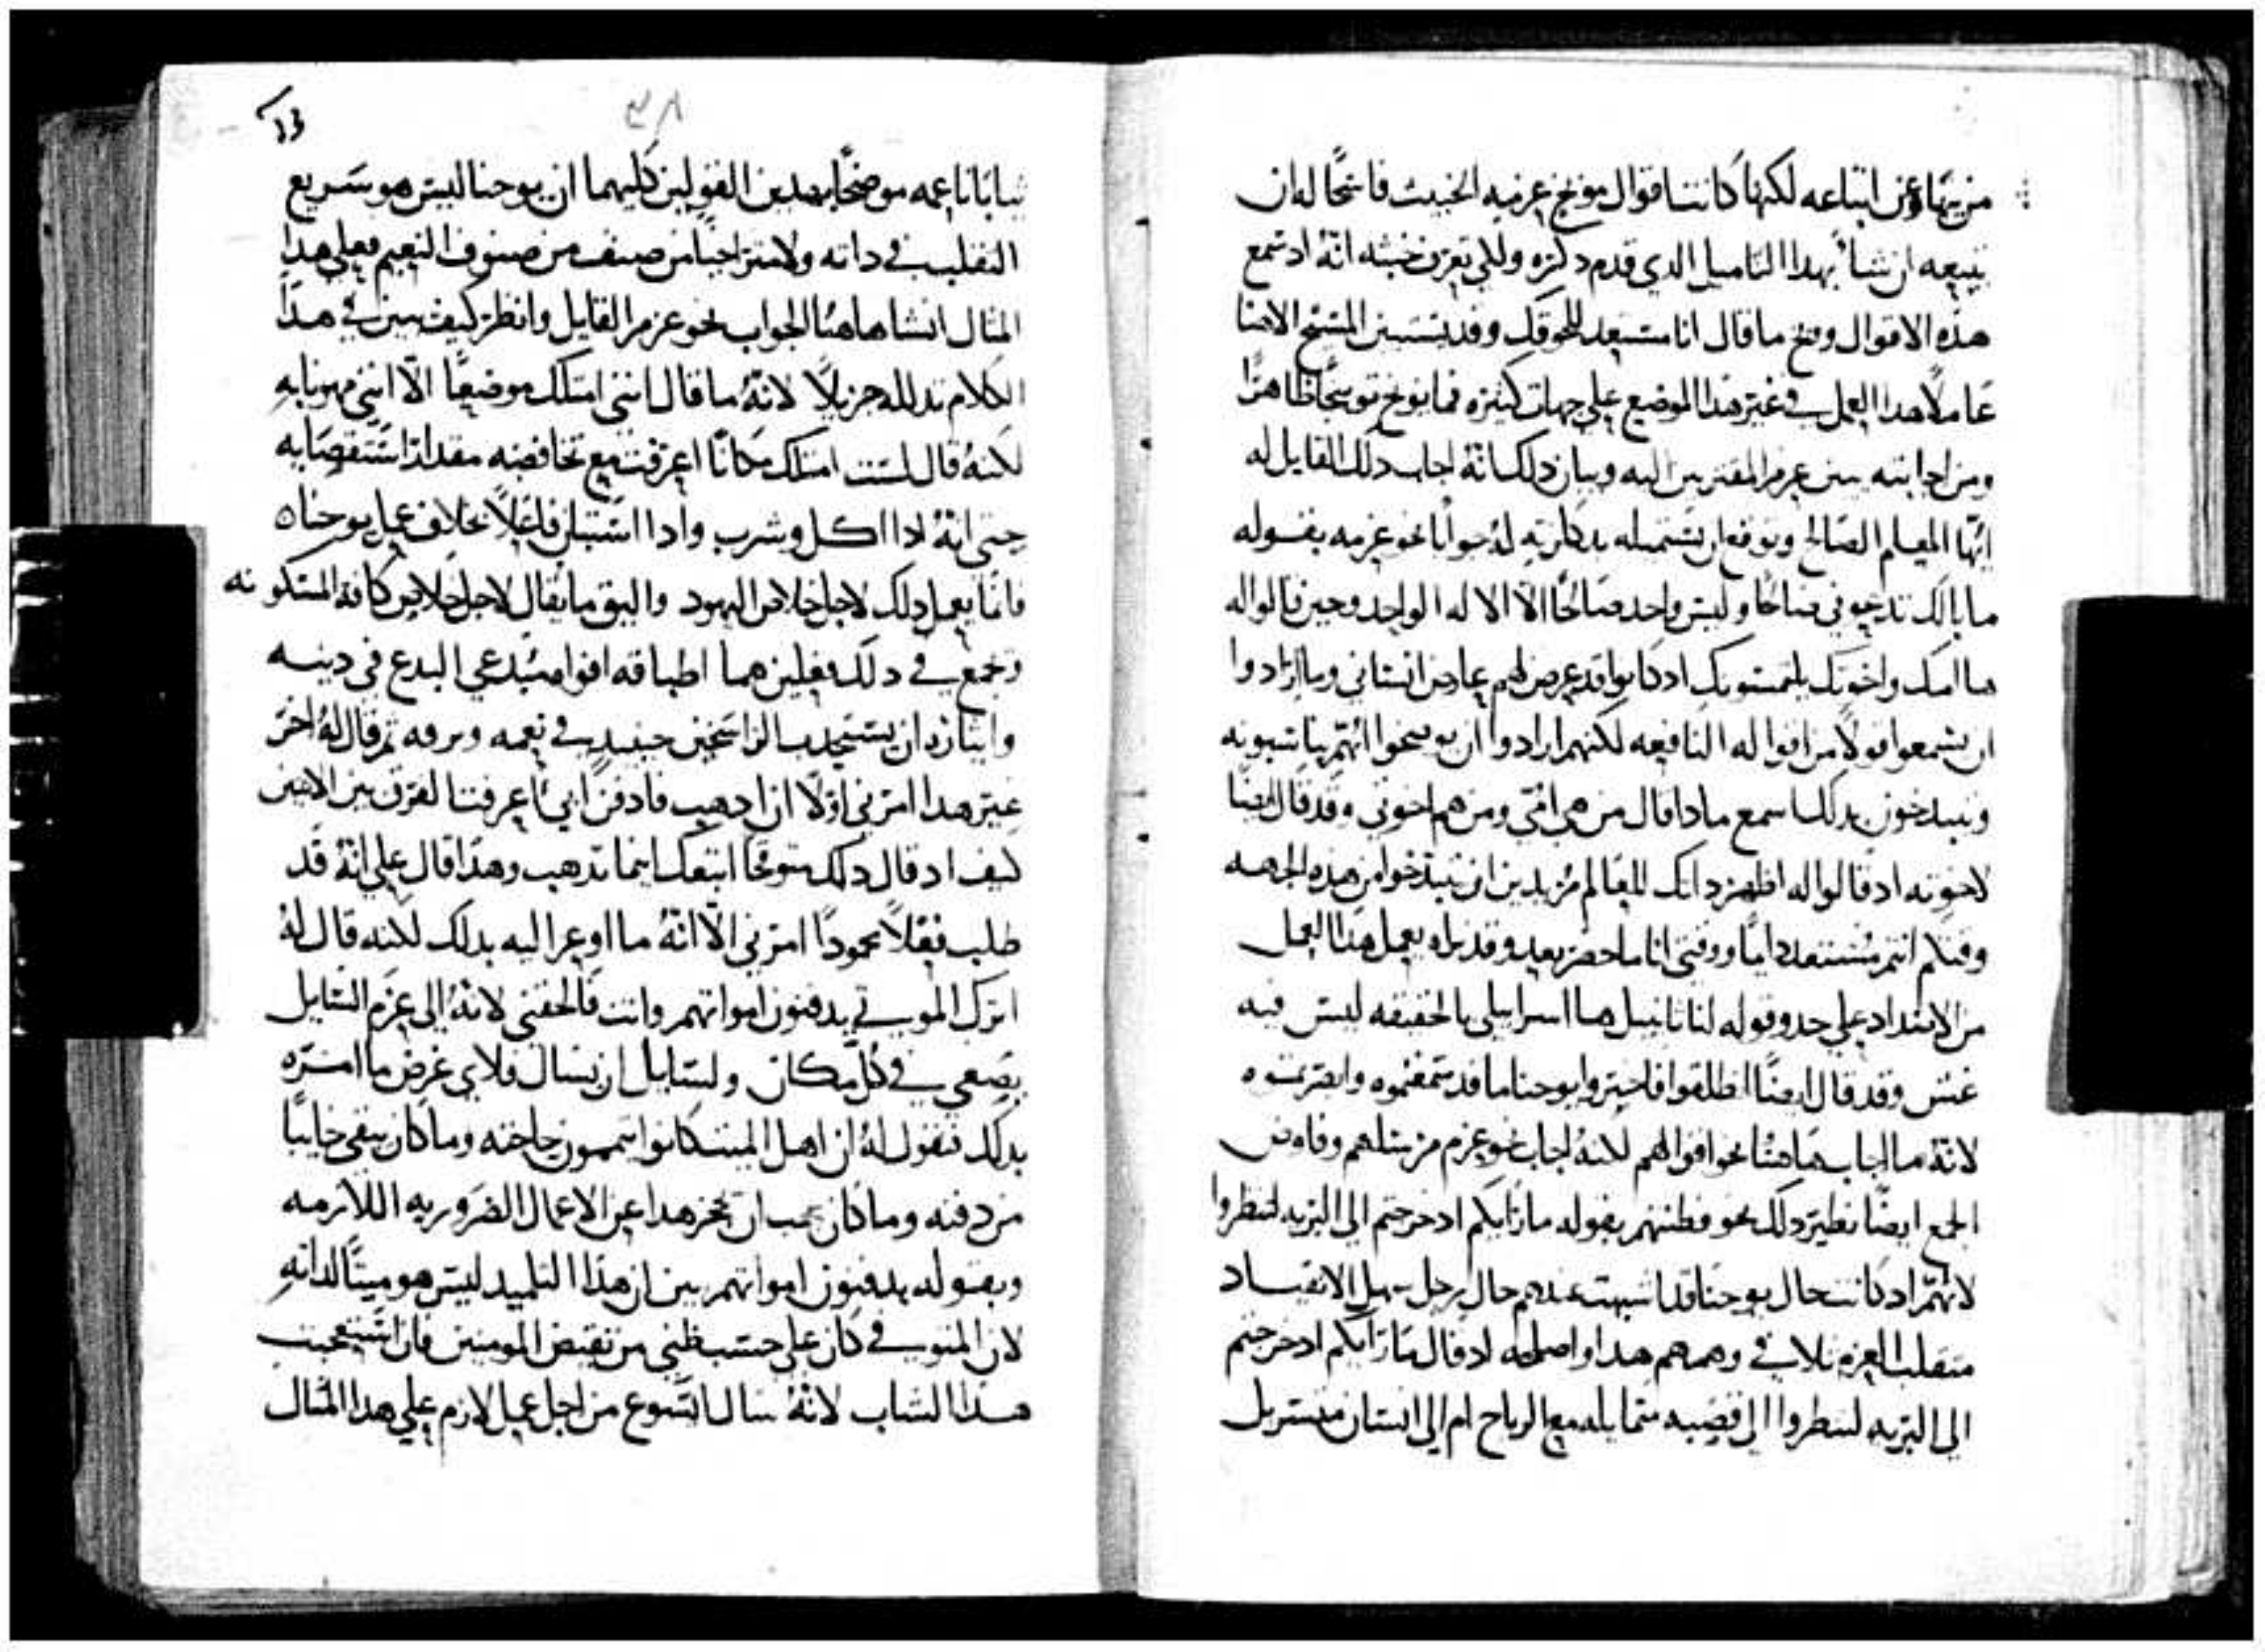 من ينهاه عن اتباعه لكنها كانت اقوال موبخ عزمه الخبيث فاسحًا له ان
يتبعه ان نشا بهدا التاميل الدي قدم دكره ولكي تعرف خبثه انه اد سمع
هده الاقوال وبخ ما قال انا مستعد للحوقك وقد يستبين المسيح الاهنا
عاملاً هدا العمل في غير هدا الموضع علي جهات كثيره فما يوبخ توبيخًا ظاهرًا
ومن اجابته يبين عزم المقتربين اليه وبيان دلك انه اجاب دلك القايل له
ايها المعلم الصالح وتوقع ان يستميله بدكارته له جوابًا نحو عزمه بقوله
ما بالك تدعوني صالحًا وليس واحد صالحًا الا الاله الواحد وحين قالوا له
ها امك واخوتك يلتمسونك اد كانوا قد عرض لهم عارض انساني وما ارادوا
ان يسمعوا قولاً من اقواله النافعه لكنهم ارادوا ان يوضحوا انهم يناسبونه
ويبدخون بدلك اسمع مادا قال من هي امي ومن هم اخوتي وقد قال ايضًا
لاخوته اد قالوا له اظهر داتك للعالم مريدين ان يتبدخوا من هده الجهه
وقتكم انتم مستعد دايمًا ووقتي انا ما حضر بعد وقد نراه يعمل هدا العمل
من الابتداد علي حدو قوله لناثانييل ها اسراييلي بالحقيقه ليس فيه
غش وقد قال ايضًا انطلقوا فاخبروا يوحنا ما قد سمعتموه وابصرتموه
لانه ما اجاب هاهنا نحو اقوالهم لكنه اجاب نحو عزم مرسلهم وفاوض
الجمع ايضًا نظير دلك نحو فطنتهم بقوله ما رايكم اد خرجتم الي البريه لتنظروا
لانهم اد كانت حال يوحنا قد اشبهت عندهم حال رجل سهل الانقياد
متقلب العزم تلافي وهمهم هدا واصلحه اد قال ما رايكم اد خرجتم
الي البريه لتنظروا الي قصبه تتمايل مع الرياح ام الي انسان متسربل
٢٨
ثيابًا ناعمه موضحًا بهدين القولين كليهما ان يوحنا ليس هو سريع
التقليب في داته ولا متراخيًا من صنف من صنوف النعيم فعلي هدا
المثال انشا هاهنا الجواب نحو عزم القايل وانظر كيف يبين في هدا
الكلام تدلله جزيلاً لانه ما قال انني امتلك موضعًا الا انني متهون به
لكنه قال لست امتلك مكانًا اعرفت مع تخافضه مقدار استقصايه
حتي انه ادا اكل وشرب وادا استبان فاعلاً بخلاف عمل يوحنا
فانما يعمل دلك لاجل خلاص اليهود واليق ما يقال لاجل خلاص كافة المسكونه
وجمع في دلك فعلين هما اطباقه افواه مبتدعي البدع في دينه
وايثاره ان يستجدب الراسخين حينيد في نعمه وترفه ثم قال له اخر
غير هدا امرني اولاً ان ادهب فادفن ابي اعرفت الفرق بين الاثنين
كيف اد قال دلك متوقحًا اتبعك اينما تدهب وهدا قال علي انه قد
طلب فعلاً محمودًا امرني الا انه ما اوعز اليه بدلك لكنه قال له
اترك الموتي يدفنون امواتهم وانت فالحقني لانه الي عزم السايل
يصغي في كل مكان ولسايل ان يسال فلاي غرض ما امره
بدلك فنقول له ان اهل الميت كانوا يتممون حاجته وما كان يبقي خايبًا
من دفنه وما كان يجب ان يحجز هدا عن الاعمال الضروريه اللازمه
وبقوله يدفنون امواتهم يبين ان هدا التلميد ليس هو ميتًا لداته
لان المتوفي كان علي حسب ظني من نقيض المومنين فان استعجبت
هدا الشاب لانه سال ايسوع من اجل عمل لازم علي هدا المثال